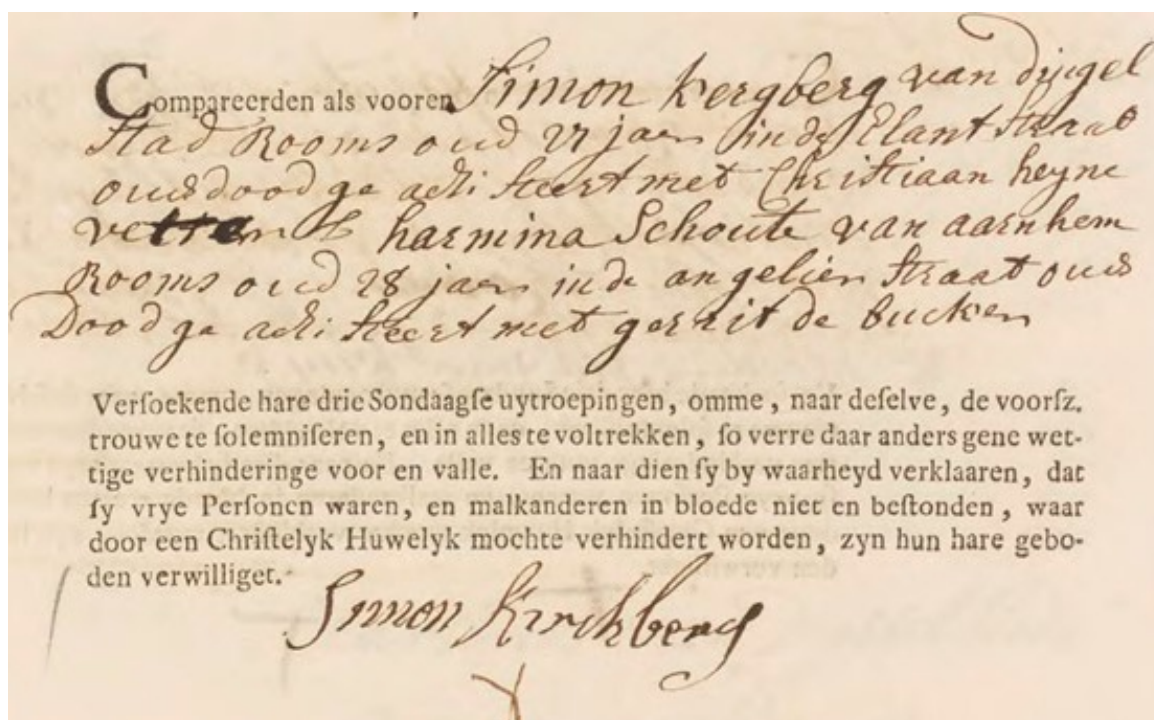 Compareerden als vooren Simon Kergberg van dingel
Stad Rooms oud 27 jaer in de Elant Straat
ouds dood ge adsi steert met Christiaan heyne
harmina Schoute van aarnhem
Rooms oud 28 jaer in de angeliers straat ouds
Dood ge adsi steert met gerrit de bucker
Versoekende hare drie Sondaagse uytroepingen, omme, naar deselve, de voorsz.
trouwe te solemniseren, en in alles te voltrekken, so verre daar anders gene wet-
tige verhinderinge voor en valle. En naar dien sy by waarheyd verklaaren, dat
sy vrye Personen waren, en malkanderen in bloede niet en bestonden, waar
door een Christelyk Huwelyk mochte verhindert worden, zyn hun hare gebo-
den verwilliget.
Simon Kirchberg